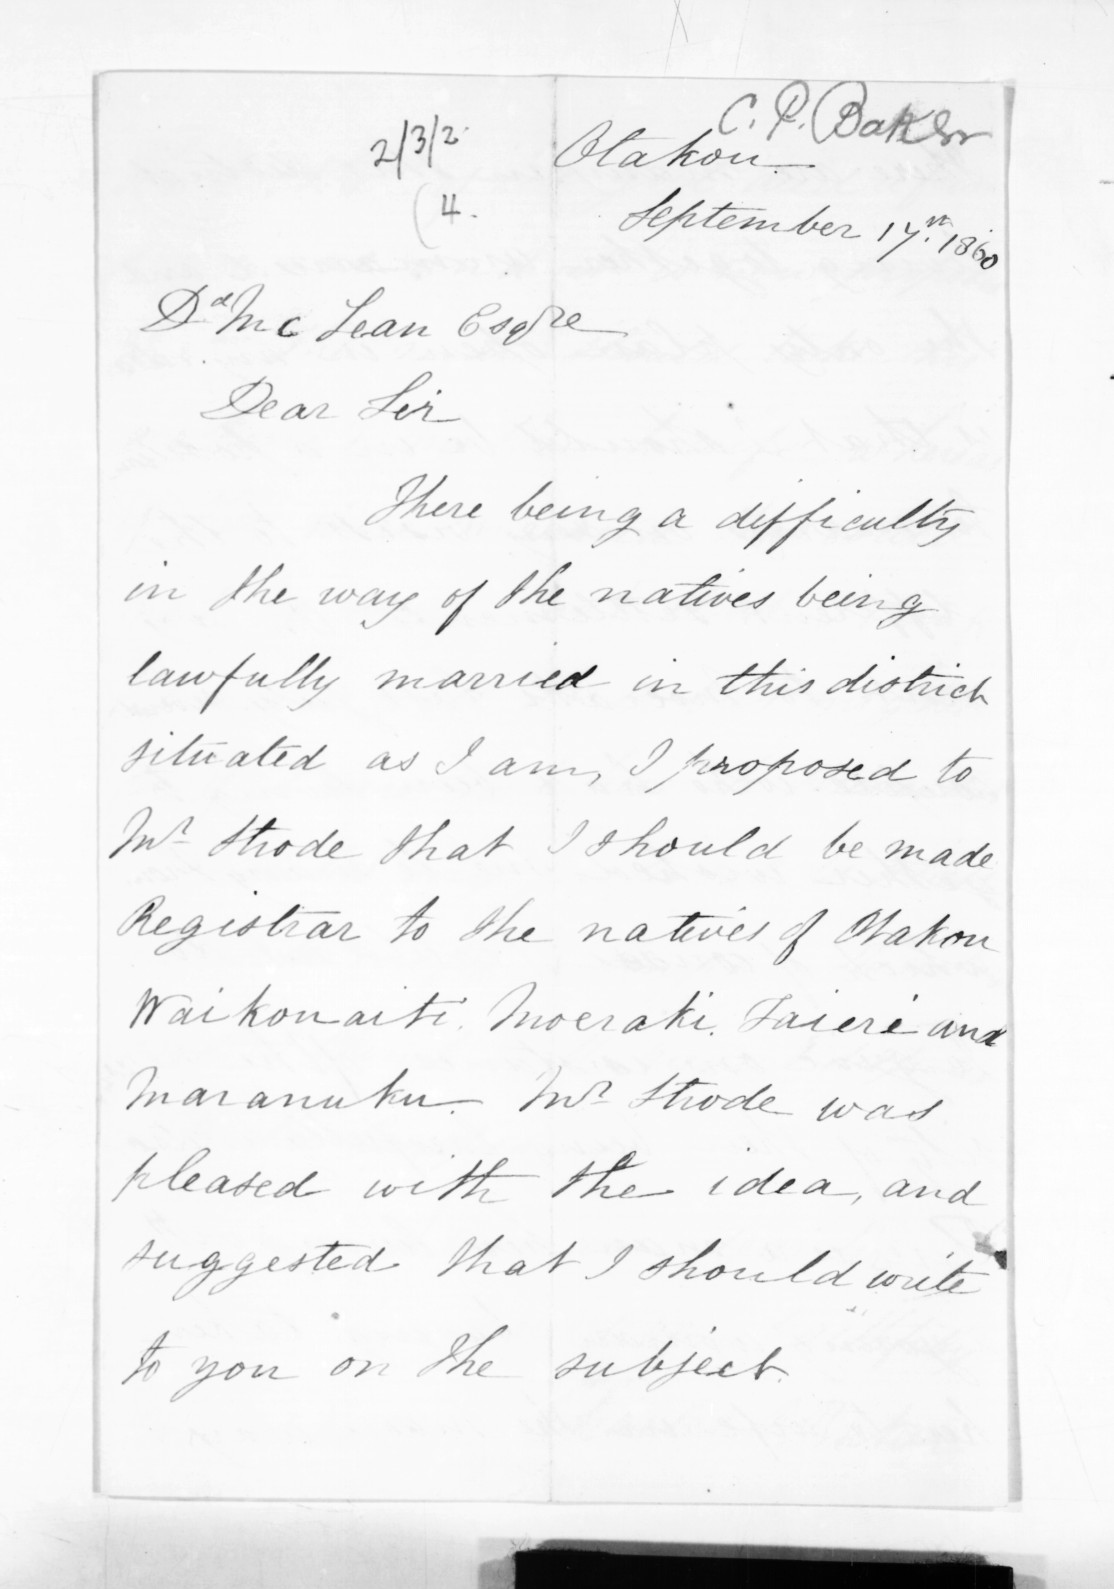 C. P. Baker
2/3/2
(4.
Otakou.
September 17th. 1860
Dd. McLean Esqre
Dear Sir
There being a difficulty
in the way of the natives being
lawfully married in this district
situated as I am, I proposed to
Mr Strode that I should be made
Registrar to the natives of Otakou
Waikouaiti. Moeraki. Taieri and
Maranuku. Mr Strode was
pleased with the idea, and
suggested that I should write
to you on the subject.